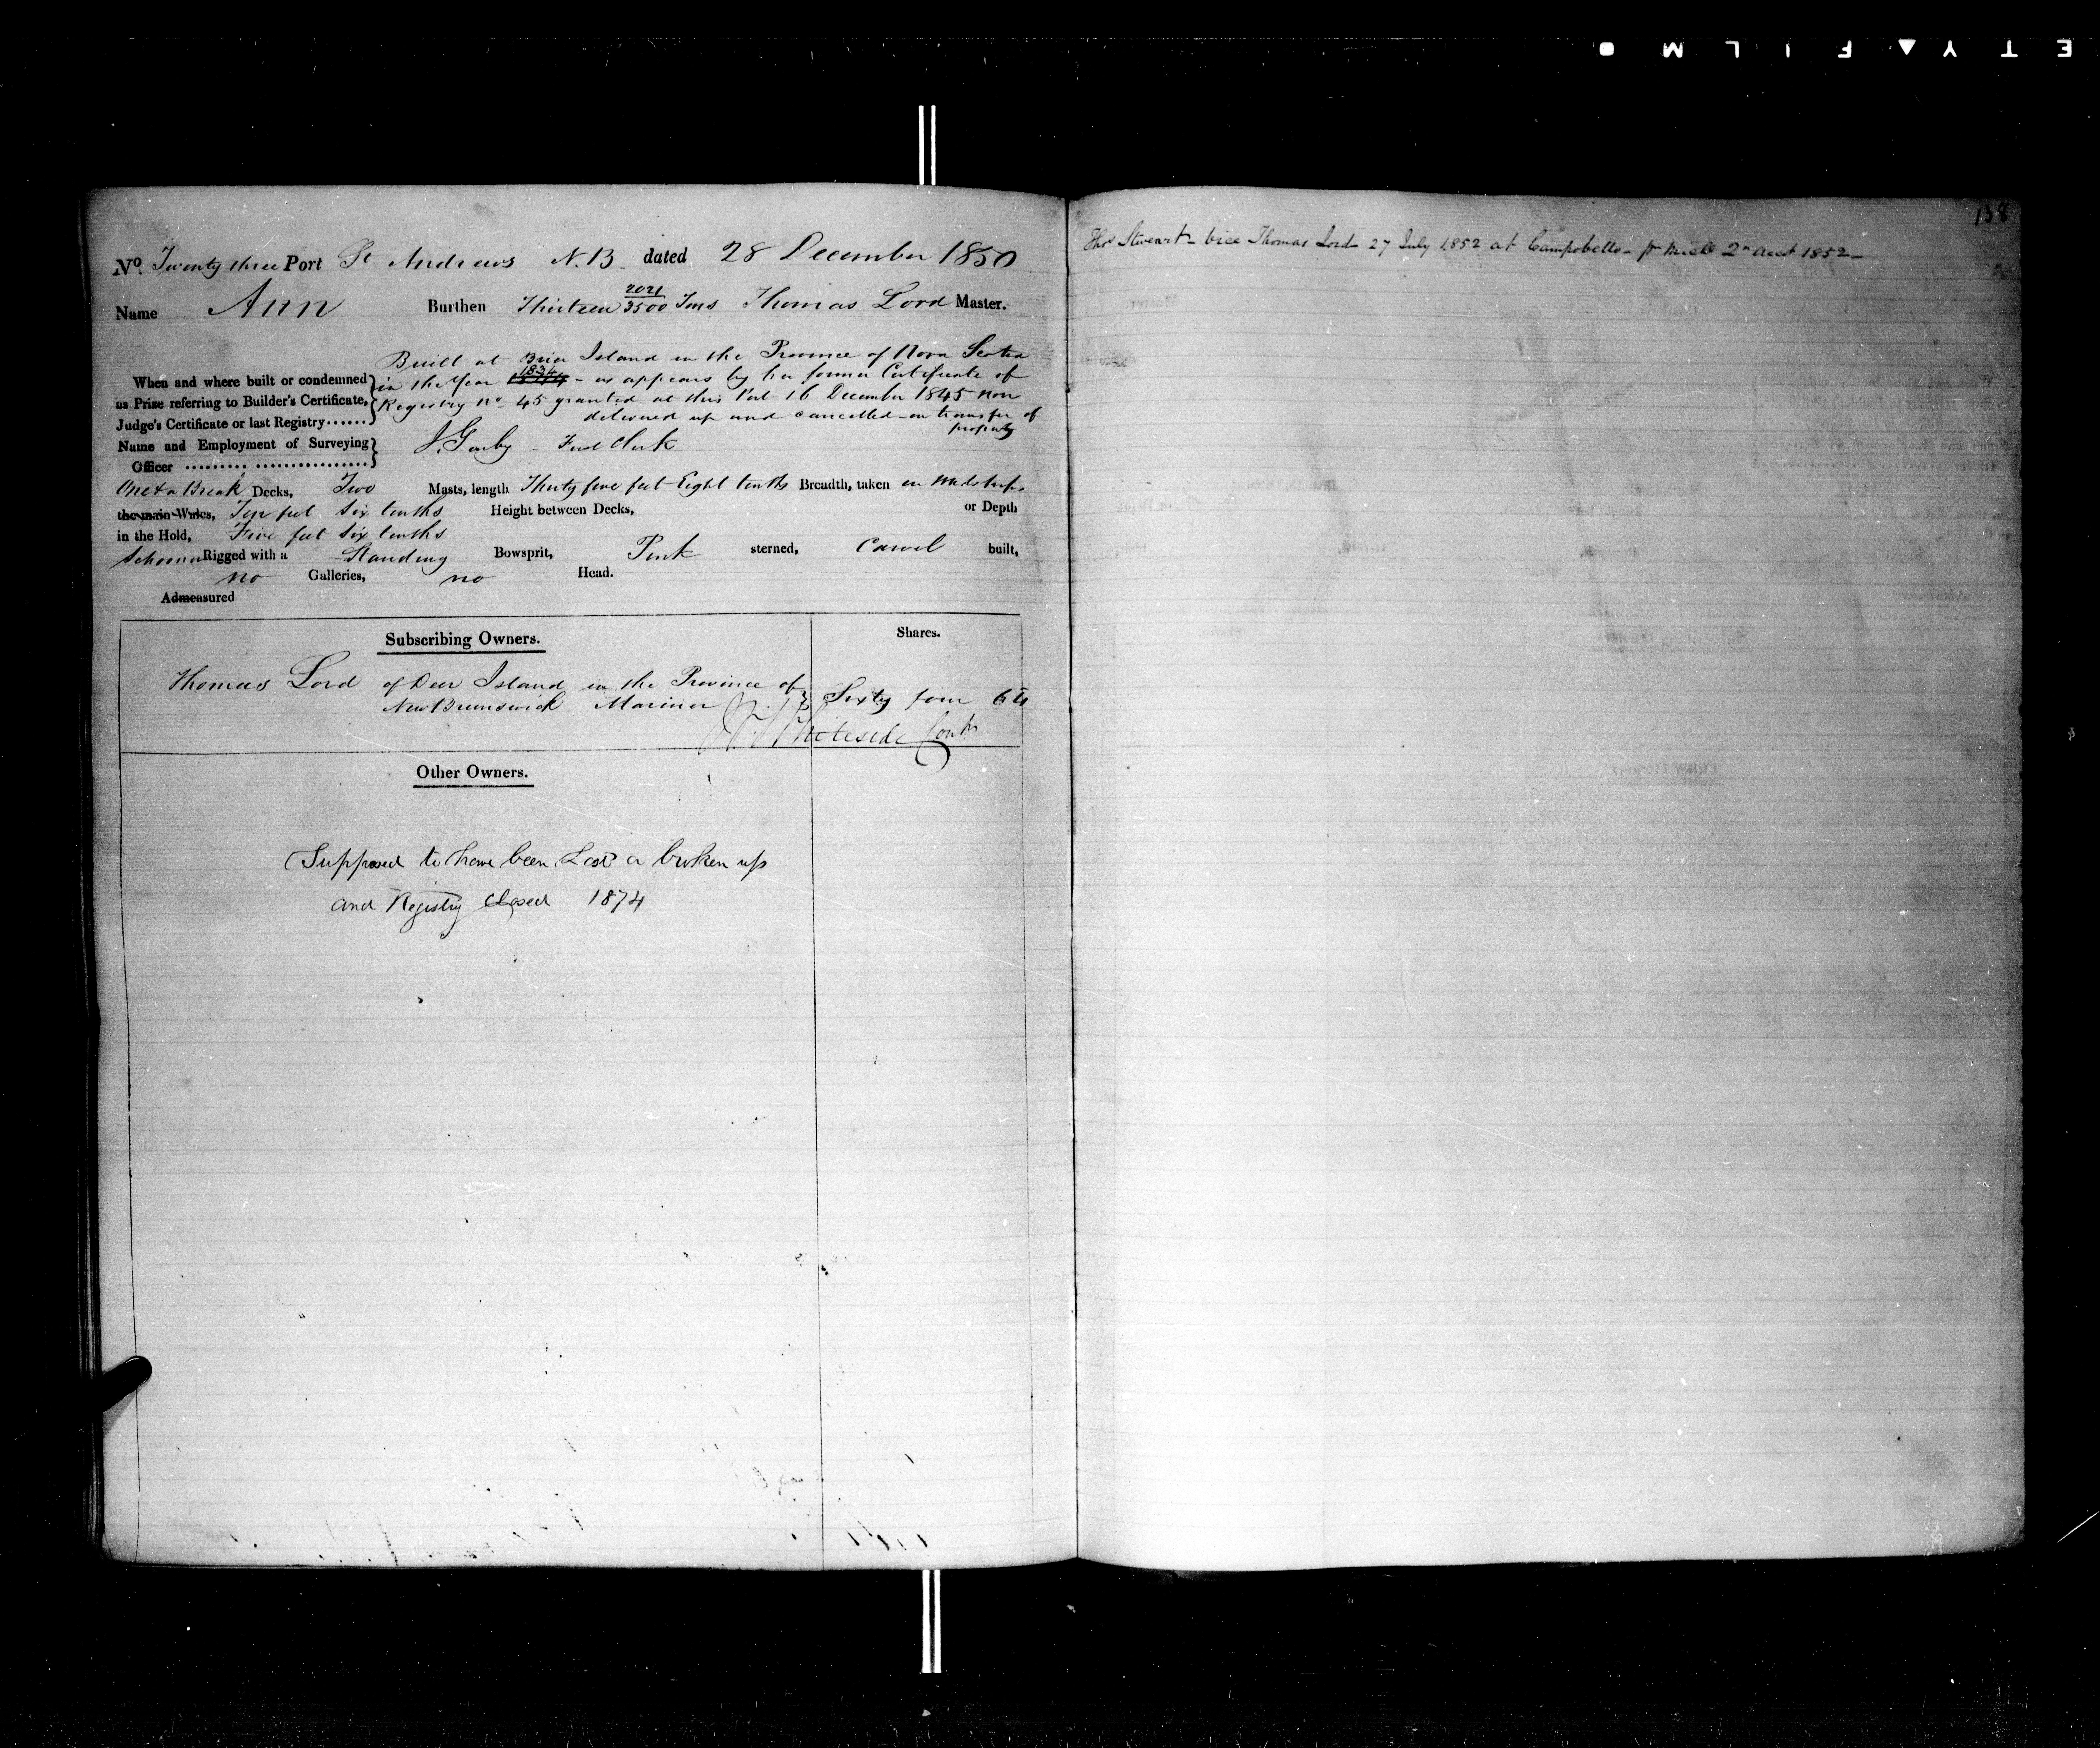 E T Y ▲ F I L M ●
138
No. Twenty three Port St Andrews N.B. dated 28 December 1850
Name Ann Burthen Thirteen 2021/3500 Tons Thomas Lord Master.
When and where built or condemned as Prize referring to Builder's Certificate, Judge's Certificate or last Registry......
Built at Brier Island in the Province of Nova Scotia
in the Year 1834 - as appears by her former Certificate of
Registry No. 45 granted at this Port 16 December 1845 now
delivered up and cancelled on transfer of
property
Name and Employment of Surveying Officer
First Clerk
One & a Break Decks, Two Masts, length Thirty five feet Eight tenths Breadth, taken in Midships
the main Wales, Ten feet Six tenths Height between Decks, or Depth
in the Hold, Five feet Six tenths
Schooner Rigged with a Standing Bowsprit, Pink sterned, Carvel built,
no Galleries, no Head.
Admeasured
Subscribing Owners. Shares.
Thomas Lord of Deer Island in the Province of
New Brunswick Mariner Sixty four 64
Whiteside
Other Owners.
Supposed to have been Lost or broken up
and Registry closed 1874
Thos Stweart - vice Thomas Lord 27 July 1852 at Campobello
1852